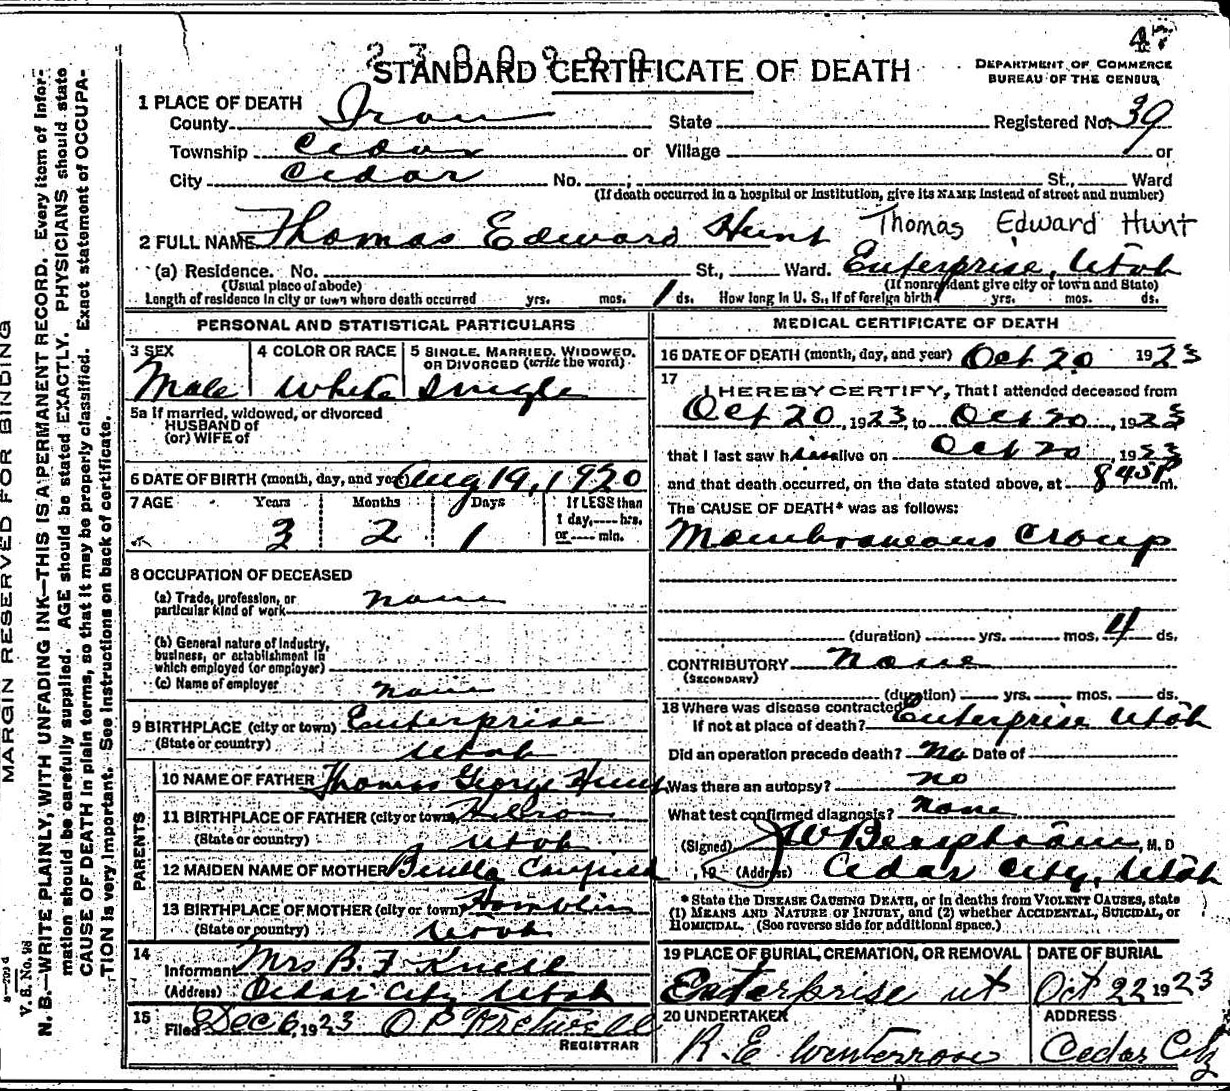 47
2300990
STANDARD CERTIFICATE OF DEATH
DEPARTMENT OF COMMERCE
BUREAU OF THE CENSUS
1 PLACE OF DEATH
County Iron State Registered No. 39
Township Cedar or Village or
City Cedar No. St., Ward
(If death occurred in a hospital or institution, give its NAME instead of street and number)
2 FULL NAME Thomas Edward Hunt Thomas Edward Hunt
(a) Residence. No. St., Ward. Enterprise, Utah
(Usual place of abode) (If nonresident give city or town and State)
Length of residence in city or town where death occurred yrs. mos. 1 ds. How long in U. S., if of foreign birth? yrs. mos. ds.
PERSONAL AND STATISTICAL PARTICULARS
3 SEX 4 COLOR OR RACE 5 SINGLE, MARRIED, WIDOWED, OR DIVORCED (write the word)
Male White Single
5a If married, widowed, or divorced
HUSBAND of
(or) WIFE of
6 DATE OF BIRTH (month, day, and year) Aug 19, 1920
7 AGE Years Months Days If LESS than
1 day, hrs.
or min.
3 2 1
8 OCCUPATION OF DECEASED
(a) Trade, profession, or
particular kind of work none
(b) General nature of industry,
business, or establishment in
which employed (or employer)
(c) Name of employer none
9 BIRTHPLACE (city or town) Enterprise
(State or country) Utah
PARENTS
10 NAME OF FATHER Thomas George Hunt
11 BIRTHPLACE OF FATHER (city or town)
(State or country) Utah
12 MAIDEN NAME OF MOTHER
13 BIRTHPLACE OF MOTHER (city or town) Hamblin
(State or country) Utah
14
Informant Mrs B. F. Knell
(Address) Cedar City Utah
15
Filed Dec 6, 1923 O P Fretwell
REGISTRAR
MEDICAL CERTIFICATE OF DEATH
16 DATE OF DEATH (month, day, and year) Oct 20 1923
17
I HEREBY CERTIFY, That I attended deceased from
Oct 20, 1923, to Oct 20, 1923
that I last saw him alive on Oct 20, 1923
and that death occurred, on the date stated above, at 8 45 P m.
The CAUSE OF DEATH* was as follows:
Membraneous Croup
(duration) yrs. mos. 4 ds.
CONTRIBUTORY None
(SECONDARY)
(duration) yrs. mos. ds.
18 Where was disease contracted
If not at place of death? Enterprise Utah
Did an operation precede death? No Date of
Was there an autopsy? no
What test confirmed diagnosis? None
(Signed) J W Bergstrom, M. D
, 19 (Address) Cedar City, Utah
* State the DISEASE CAUSING DEATH, or in deaths from VIOLENT CAUSES, state
(1) MEANS AND NATURE OF INJURY, and (2) whether ACCIDENTAL, SUICIDAL, or
HOMICIDAL. (See reverse side for additional space.)
19 PLACE OF BURIAL, CREMATION, OR REMOVAL DATE OF BURIAL
Enterprise ut Oct 22 1923
20 UNDERTAKER ADDRESS
R. E. Winterrose Cedar City
MARGIN RESERVED FOR BINDING
V. S. No. 98
N. B.—WRITE PLAINLY, WITH UNFADING INK—THIS IS A PERMANENT RECORD. Every item of infor-
mation should be carefully supplied. AGE should be stated EXACTLY. PHYSICIANS should state
CAUSE OF DEATH in plain terms, so that it may be properly classified. Exact statement of OCCUPA-
TION is very important. See instructions on back of certificate.